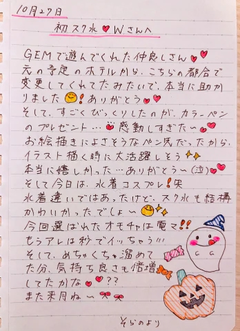 10月27日
初スク水♥Wさんへ
GEMで遊んでくれた仲良しさん♥
元の予定のホテルから、こちらの都合で
変更してくれてたみたいで、本当に助か
りました!ありがとう♥
そして、すごくびっくりしたのが、カラーペン
のプレゼント…♥感動しすぎた〜
お絵描きによさそうなペン先だったから、
イラスト描く時に大活躍しそう
本当に嬉しかった…ありがとう〜(泣)♥
そして今日は、水着コスプレ!
水着違いではあったけど、スク水も結構
かわいかったでしょ〜
今回選ばれたオモチャは電マ!!
もうアレは秒でイッちゃう!!!
そして、めちゃくちゃ溜めて
た分、気持ち良さも倍増
してたかな♥??
また来月ね〜
そらのより